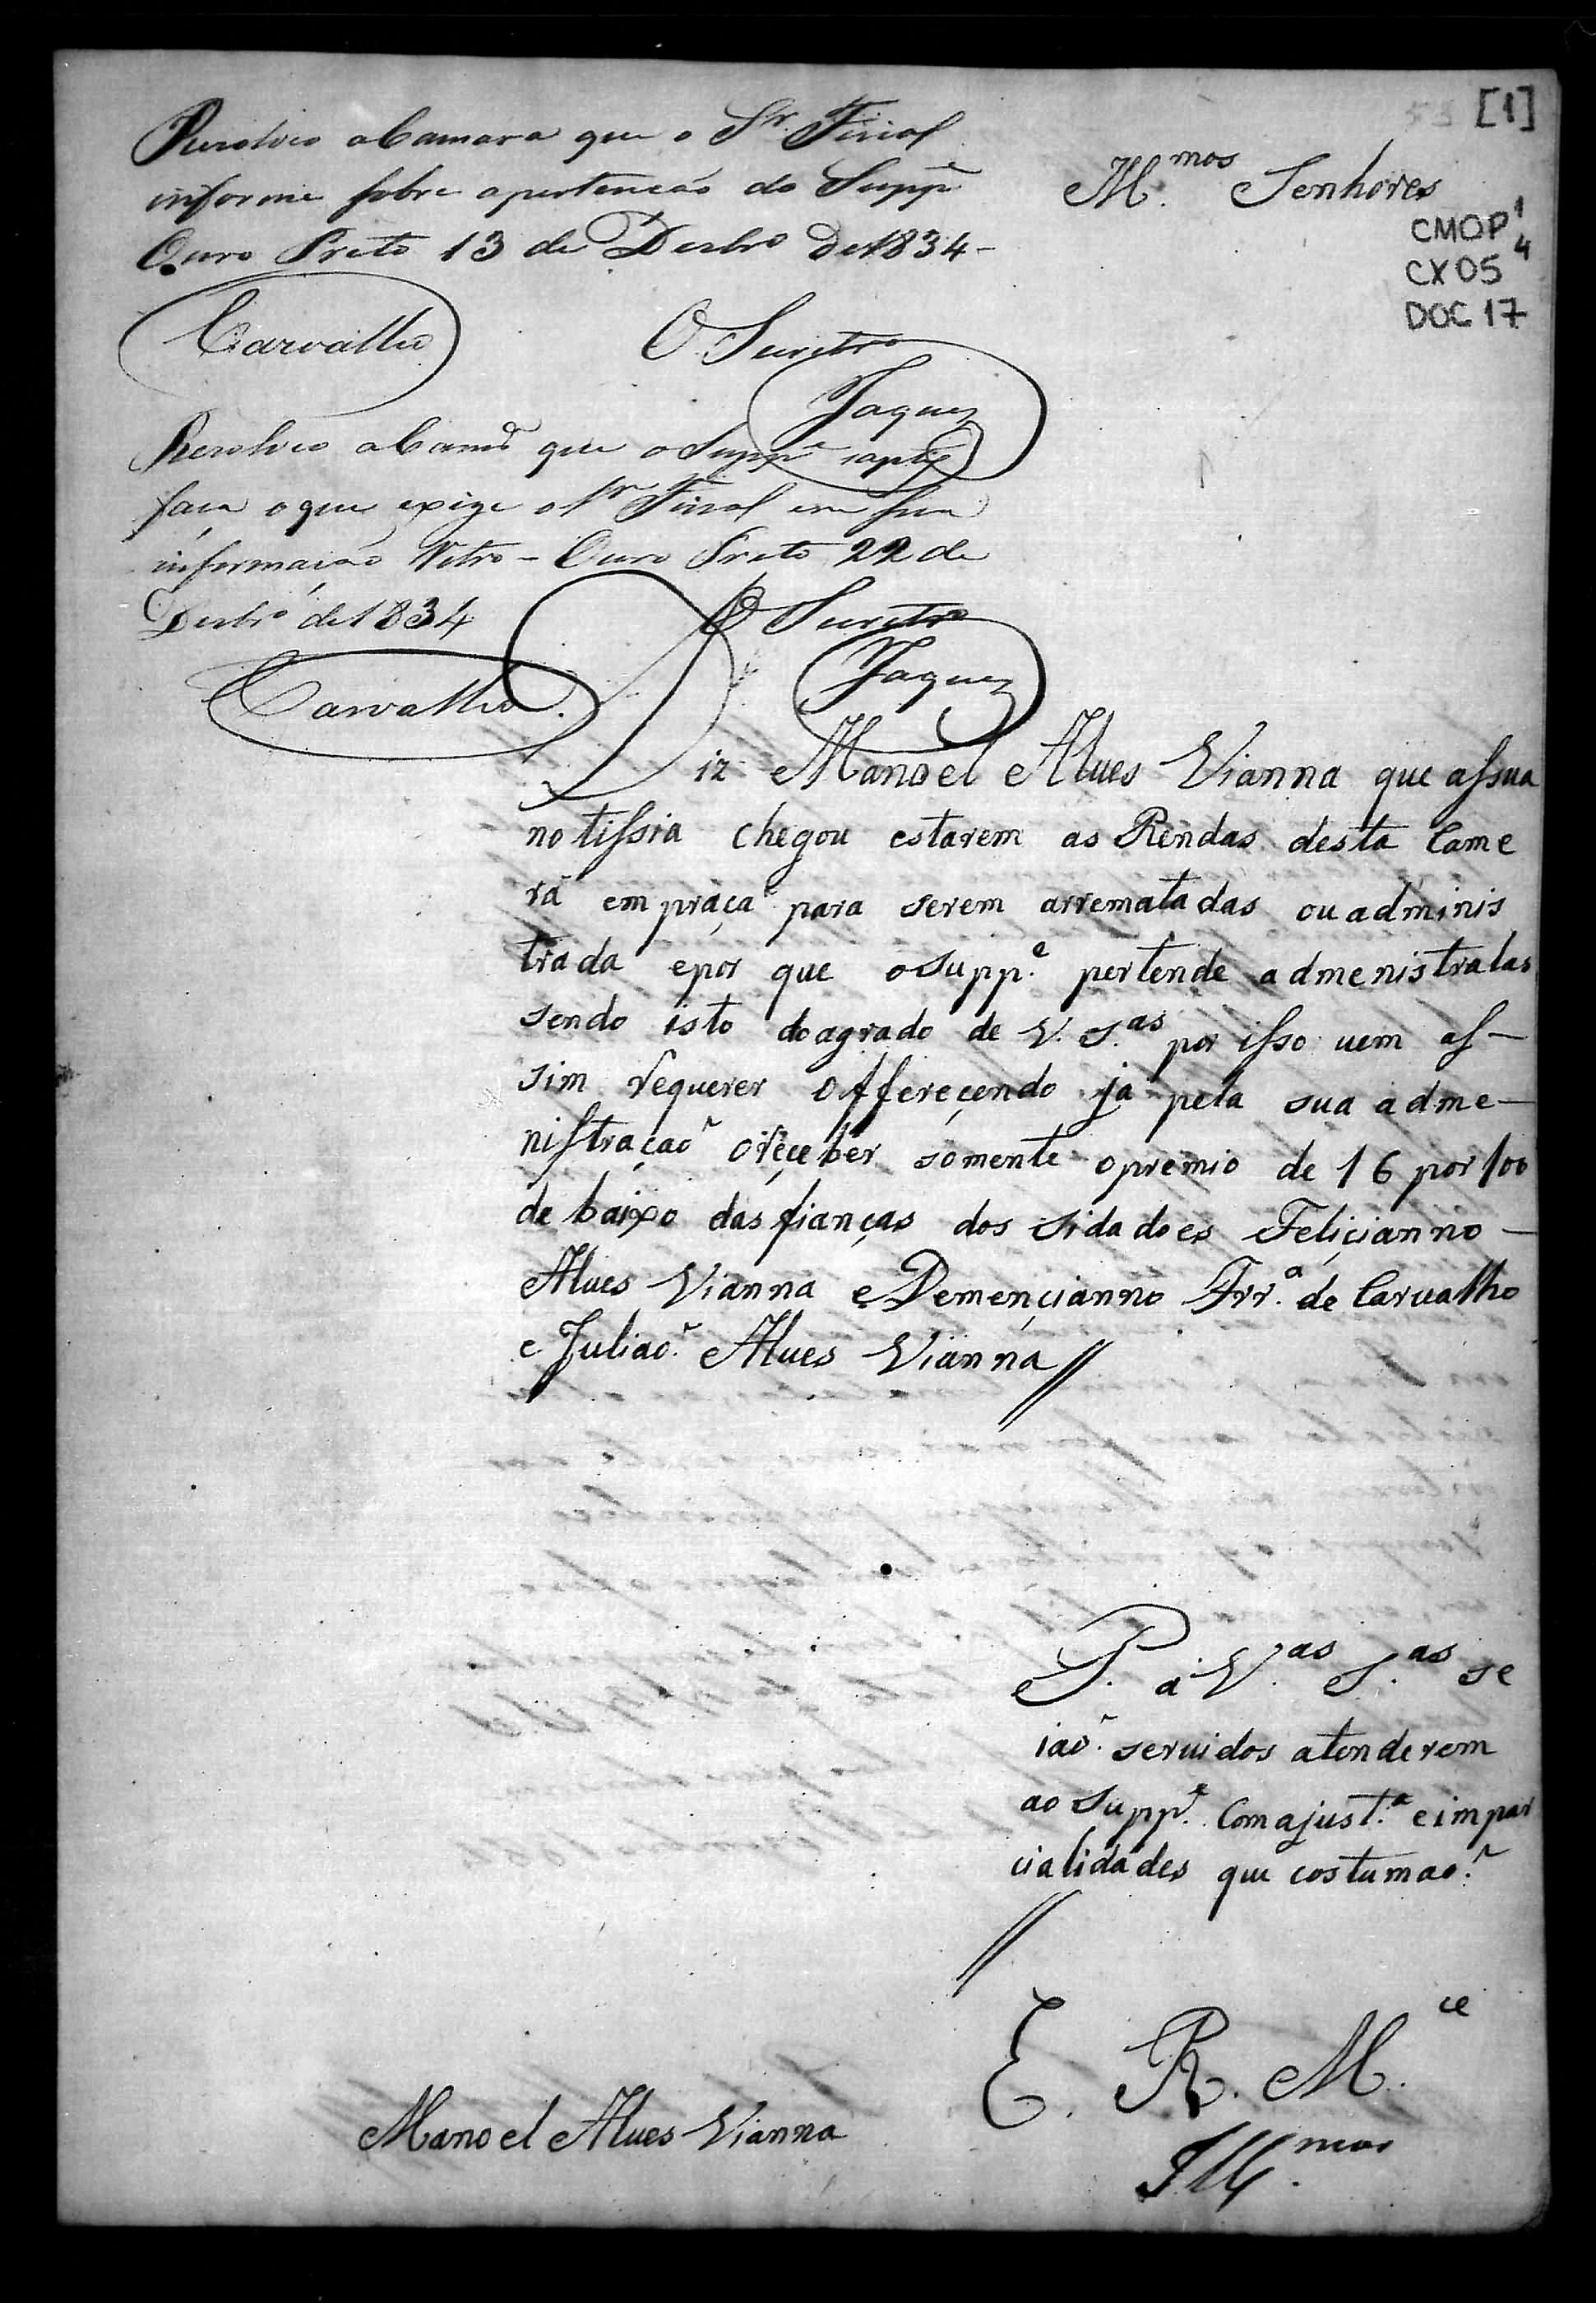 [1]
Resolveo a Camara que o Sr. Fiscal
informe sobre apertencão do Suppe
Ouro Preto 13 de Dezbro De 1834-
Carvalho
O Secretro
Jaques
Mmos. Senhores
CMOP 1
4
CX05
DOC 17
Resolveo a Camra que o Suppe
faça o que exige o Sr Fiscal em sua
informação Retro - Ouro Preto 22 de
Dezbro de 1834
O Secretro
Jaques
Carvalho.
Diz Manoel Alues Vianna que assua
notissia chegou estarem as Rendas desta Came
ra em praça para serem arrematadas ou adminis
trada epor que o Suppe. pertende admenistralas
sendo isto do agrado de V. S.as por isso uem as-
sim requerer Offereçendo ja pela sua adme-
nistraçaõ oreçeber somente opremio de 16 por 100
de baixo das fianças dos Sidadoes Feliçianno -
Alues Vianna e Demençianno Frr.a de Carualho
e Juliaõ. Alues Vianna //
P. a V.as S.as se
iaõ. seruidos atenderem
ao Supp.e Com a just.a e impar
cialidades que costumaõ.
//
E. R. M.ce
Manoel Alues Vianna
Ill.mos